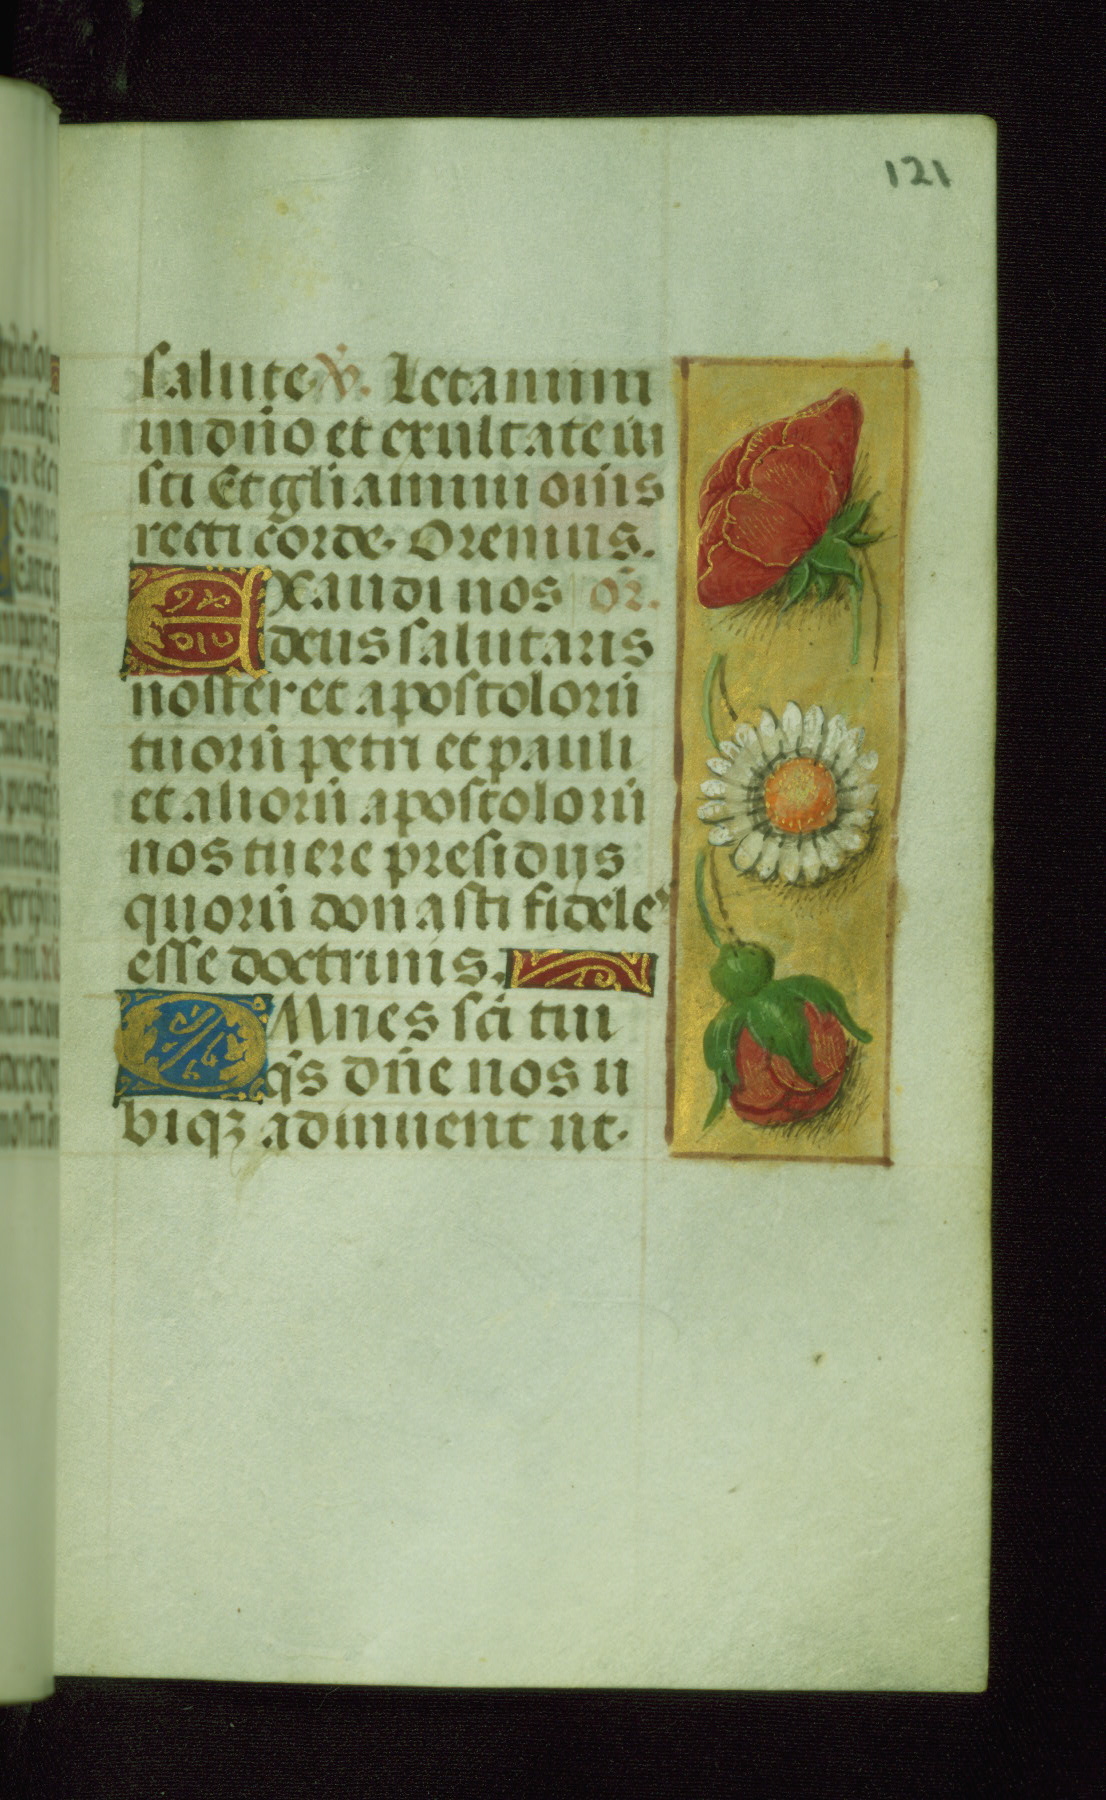 121
salute. v̇. Letamini
in dño et exultate iu
sti Et gliamini oı̄ns
recti corde. Oremus.
Exaudi nos or̄.
deus salutaris
noster et apostolorū
tuorū petri et pauli
et aliorū apostolorū
nos tuere presidiis
quorū donasti fideles
esse doctrinis.
OMnes sc̄i tui
qs̄ dn̄e nos u
biqꝫ adiuuent ut.